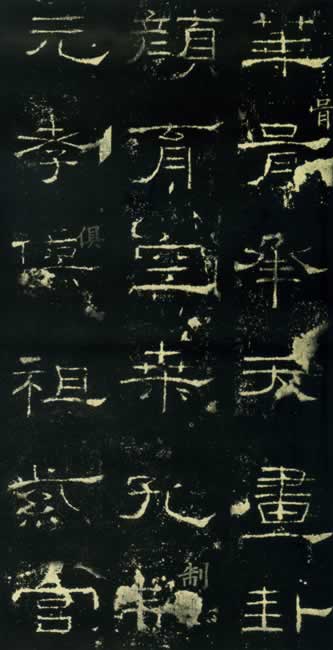 華胥承天畫卦
骨
顏育空桑孔制
制
元孝俱祖紫宮
俱